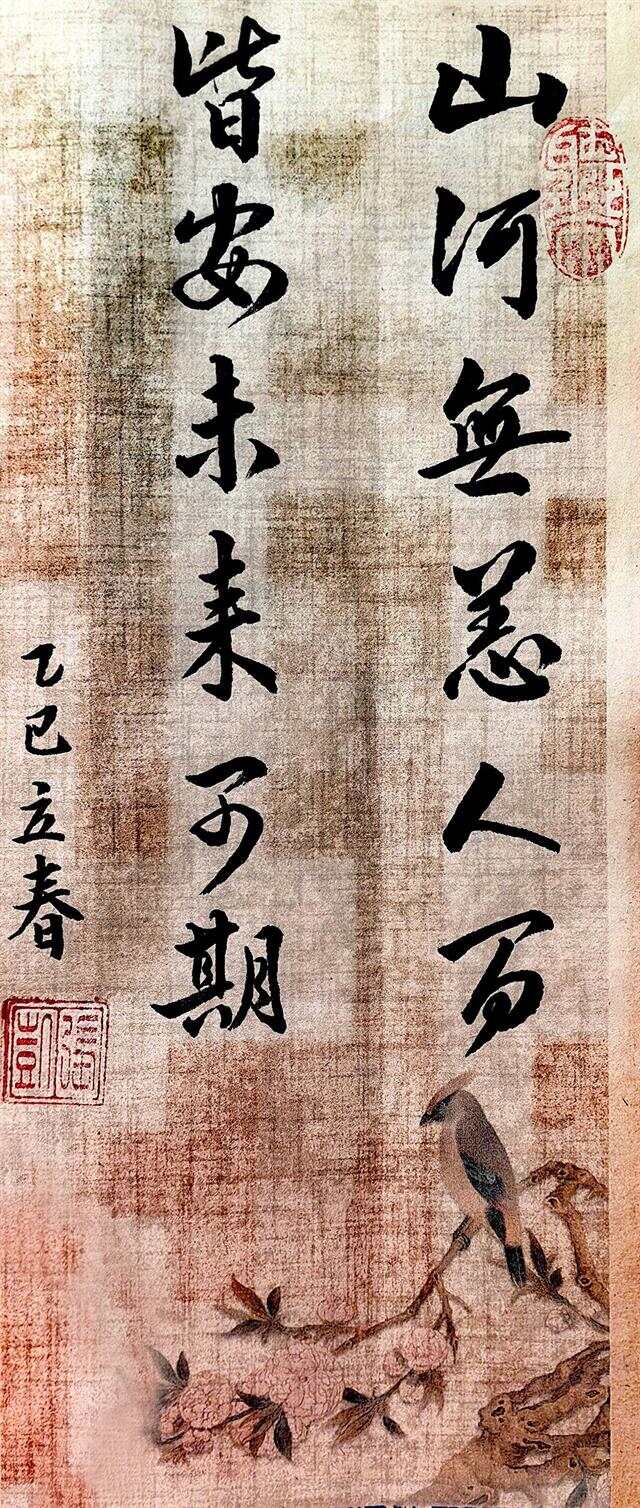 山河無恙人間
皆安未来可期
乙巳立春